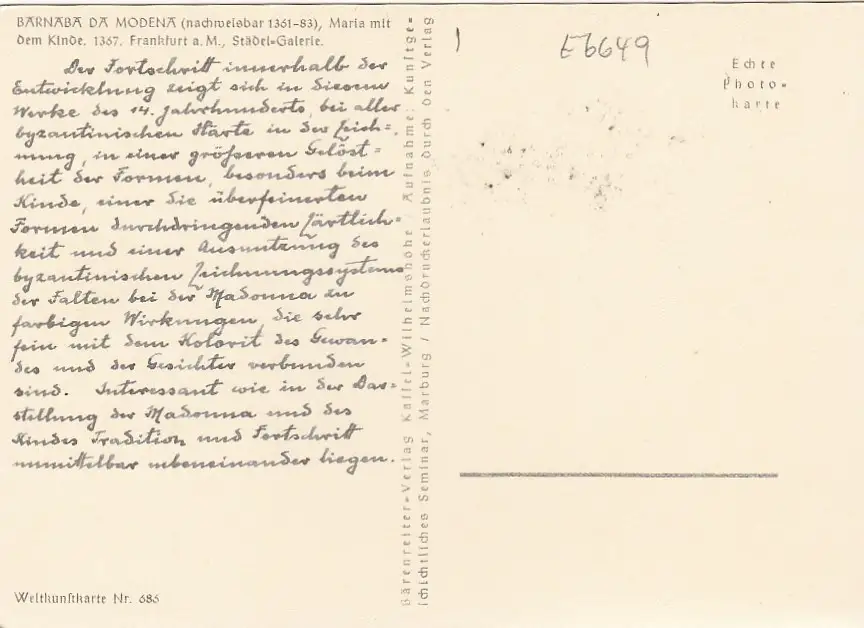 BARNABA DA MODENA (nachweisbar 1361-83), Maria mit
dem Kinde. 1367. Frankfurt a. M., Städel-Galerie.
Der Fortschritt innerhalb der
Entwicklung zeigt sich in diesem
Werke des 14. Jahrhunderts, bei aller
byzantinischen Härte in der Zeich=
nung, in einer größeren Gelöst=
heit der Formen, besonders beim
Kinde, einer die überfeinerten
Formen durchdringenden Zärtlich=
keit und einer Ausnutzung des
byzantinischen Zeichnungssystems
der Falten bei der Madonna zu
farbigen Wirkungen, die sehr
fein mit dem Kolorit des Gewan=
des und der Gesichter verbunden
sind. Interessant wie in der Dar=
stellung der Madonna und des
Kindes Tradition und Fortschritt
unmittelbar nebeneinander liegen.
Weltkunstkarte Nr. 686
Bärenreiter-Verlag Kassel-Wilhelmshöhe / Aufnahme: Kunstge=
schichtliches Seminar, Marburg / Nachdruckerlaubnis durch den Verlag
E6649
Echte
Photo=
karte